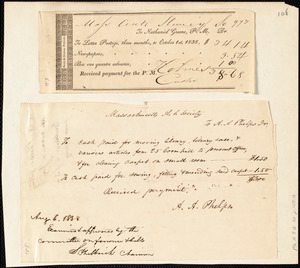 Mass Anti Slavery So
To Nathaniel Greene, P. M. Dr.
To Letter Postage, three months, to October 1st, 1838, $ 34.14
Newspapers, 3.54
Box one quarter advance, 1.00
Received payment for the P. M. 38.68
Massachusetts A. S. Society
To A. A. Phelps Dr.
To Cash paid for moving library, library case, &
various articles from 25 Cornhill to present office,
& for cleaning carpet on small room
To cash paid for sewing, fitting and carpet 1.50
Received payment,
A. A. Phelps
Aug 6. 1838
Examined & approved by the
Committee on
S Philbrick Chairman